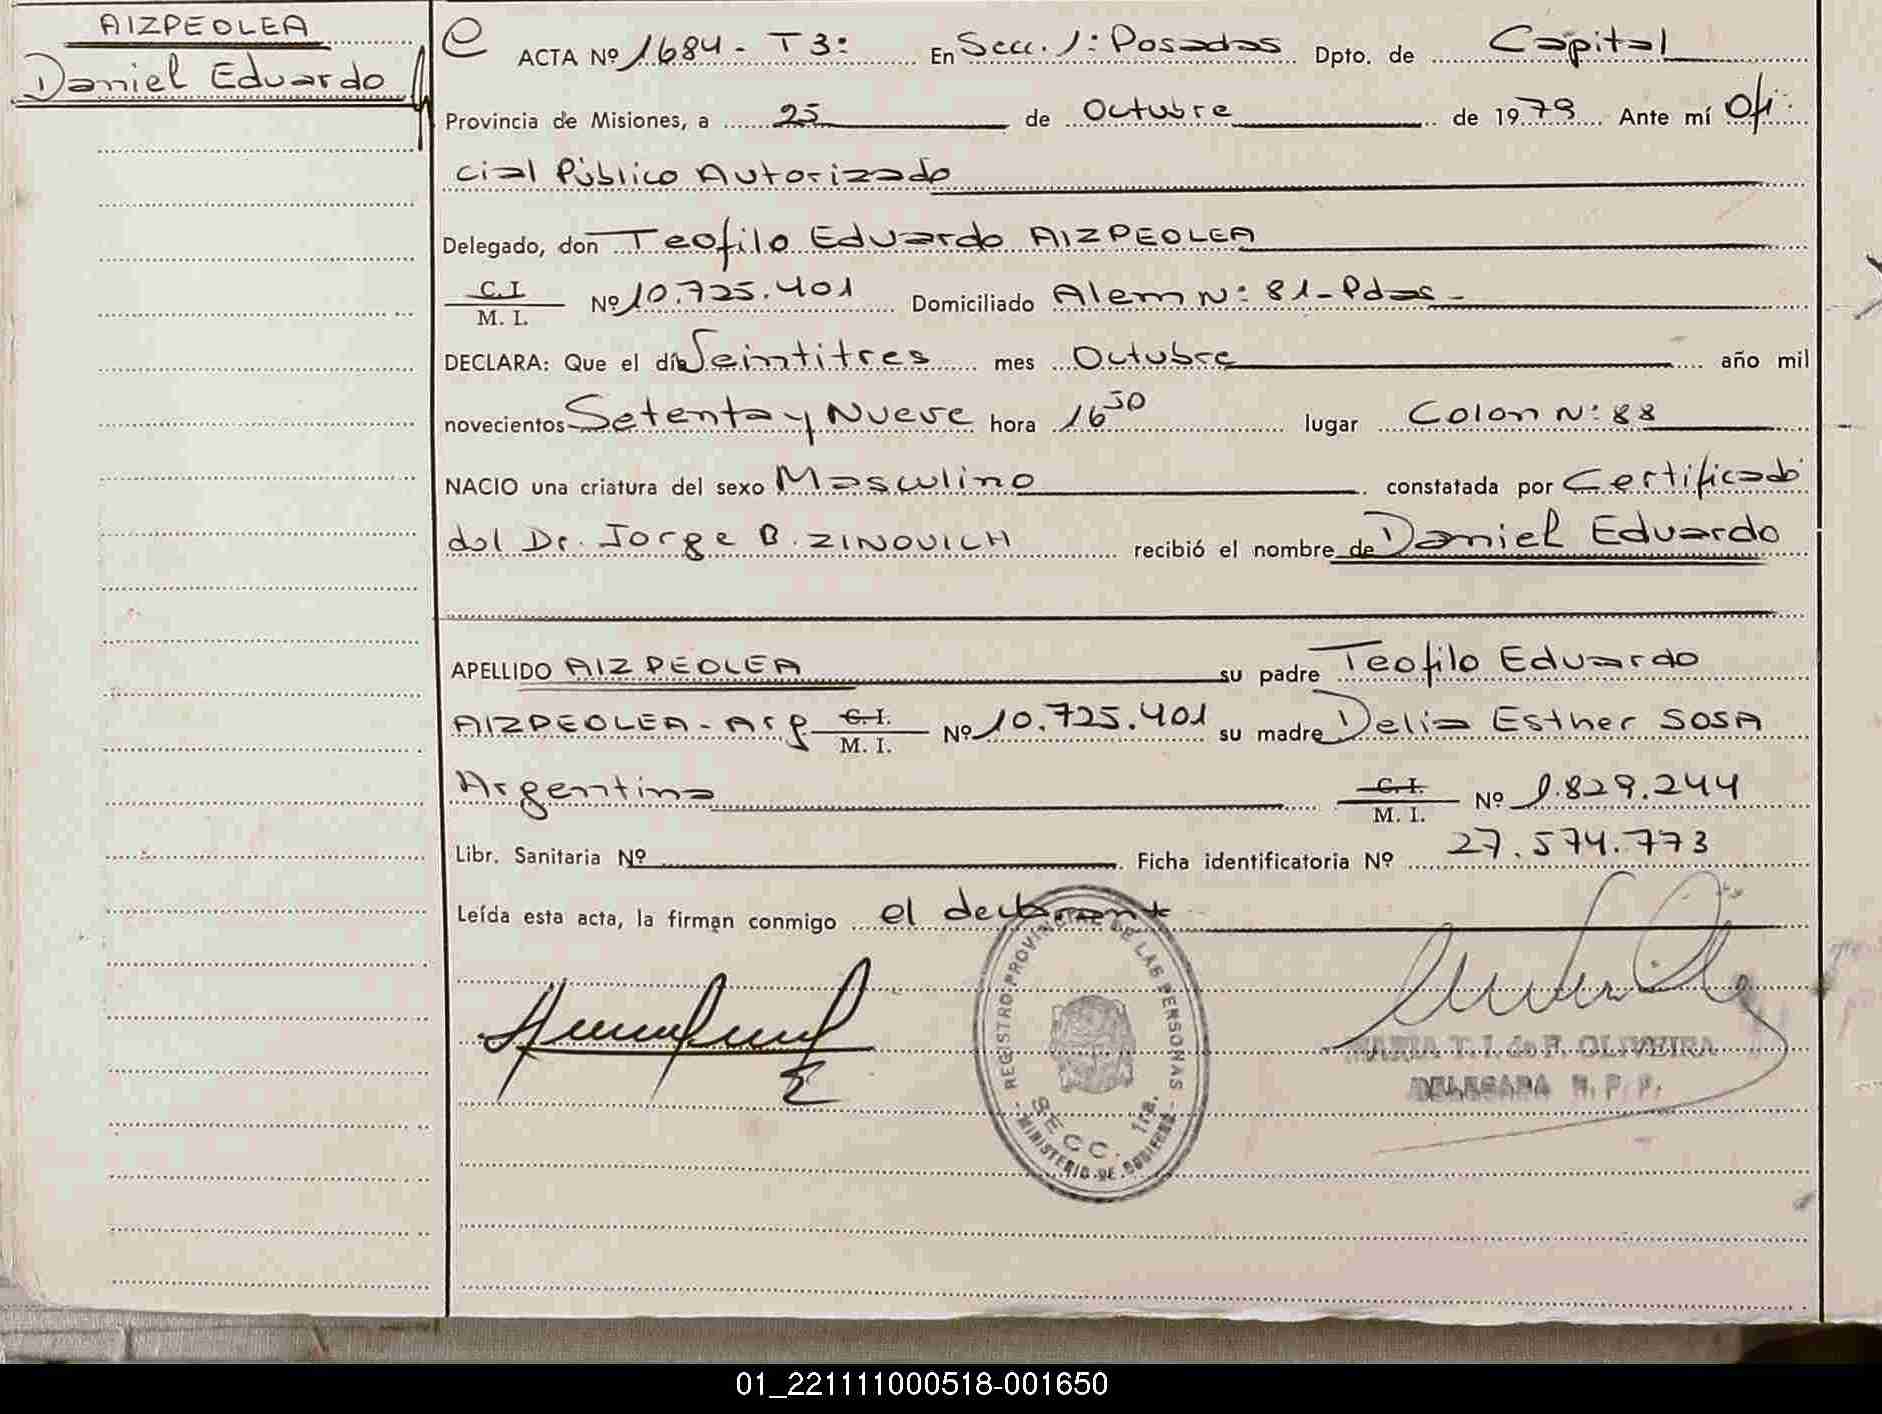 AIZPEOLEA
Daniel Eduardo
ACTA Nº 1684 - T3: En Secc. 1: Posadas Dpto. de Capital
Provincia de Misiones, a 25 de Octubre de 1979 Ante mí Ofi
cial Público Autorizado
Delegado, don Teofilo Eduardo AIZPEOLEA
C.I.
M. I. Nº 10.725.401 Domiciliado Alem Nº: 81 - Pdas -
DECLARA: Que el día Veintitres mes Octubre año mil
novecientos Setenta y Nueve hora 16 30 lugar Colon Nº: 88
NACIO una criatura del sexo Masculino constatada por Certificado
del Dr. Jorge B. ZINOVICH recibió el nombre de Daniel Eduardo
APELLIDO AIZPEOLEA su padre Teofilo Eduardo
AIZPEOLEA - Arg C.I. M. I. Nº 10.725.401 su madre Delia Esther SOSA
Argentina C.I. M. I. Nº 9.829.244
Libr. Sanitaria Nº Ficha identificatoria Nº 27.574.773
Leída esta acta, la firman conmigo el declarante
REGISTRO PROVINCIAL DE LAS PERSONAS
SECC. 1ra.
- MINISTERIO DE GOBIERNO -
MARIA T. I. de F. OLIVEIRA
DELEGADA R. P. P.
01_221111000518-001650